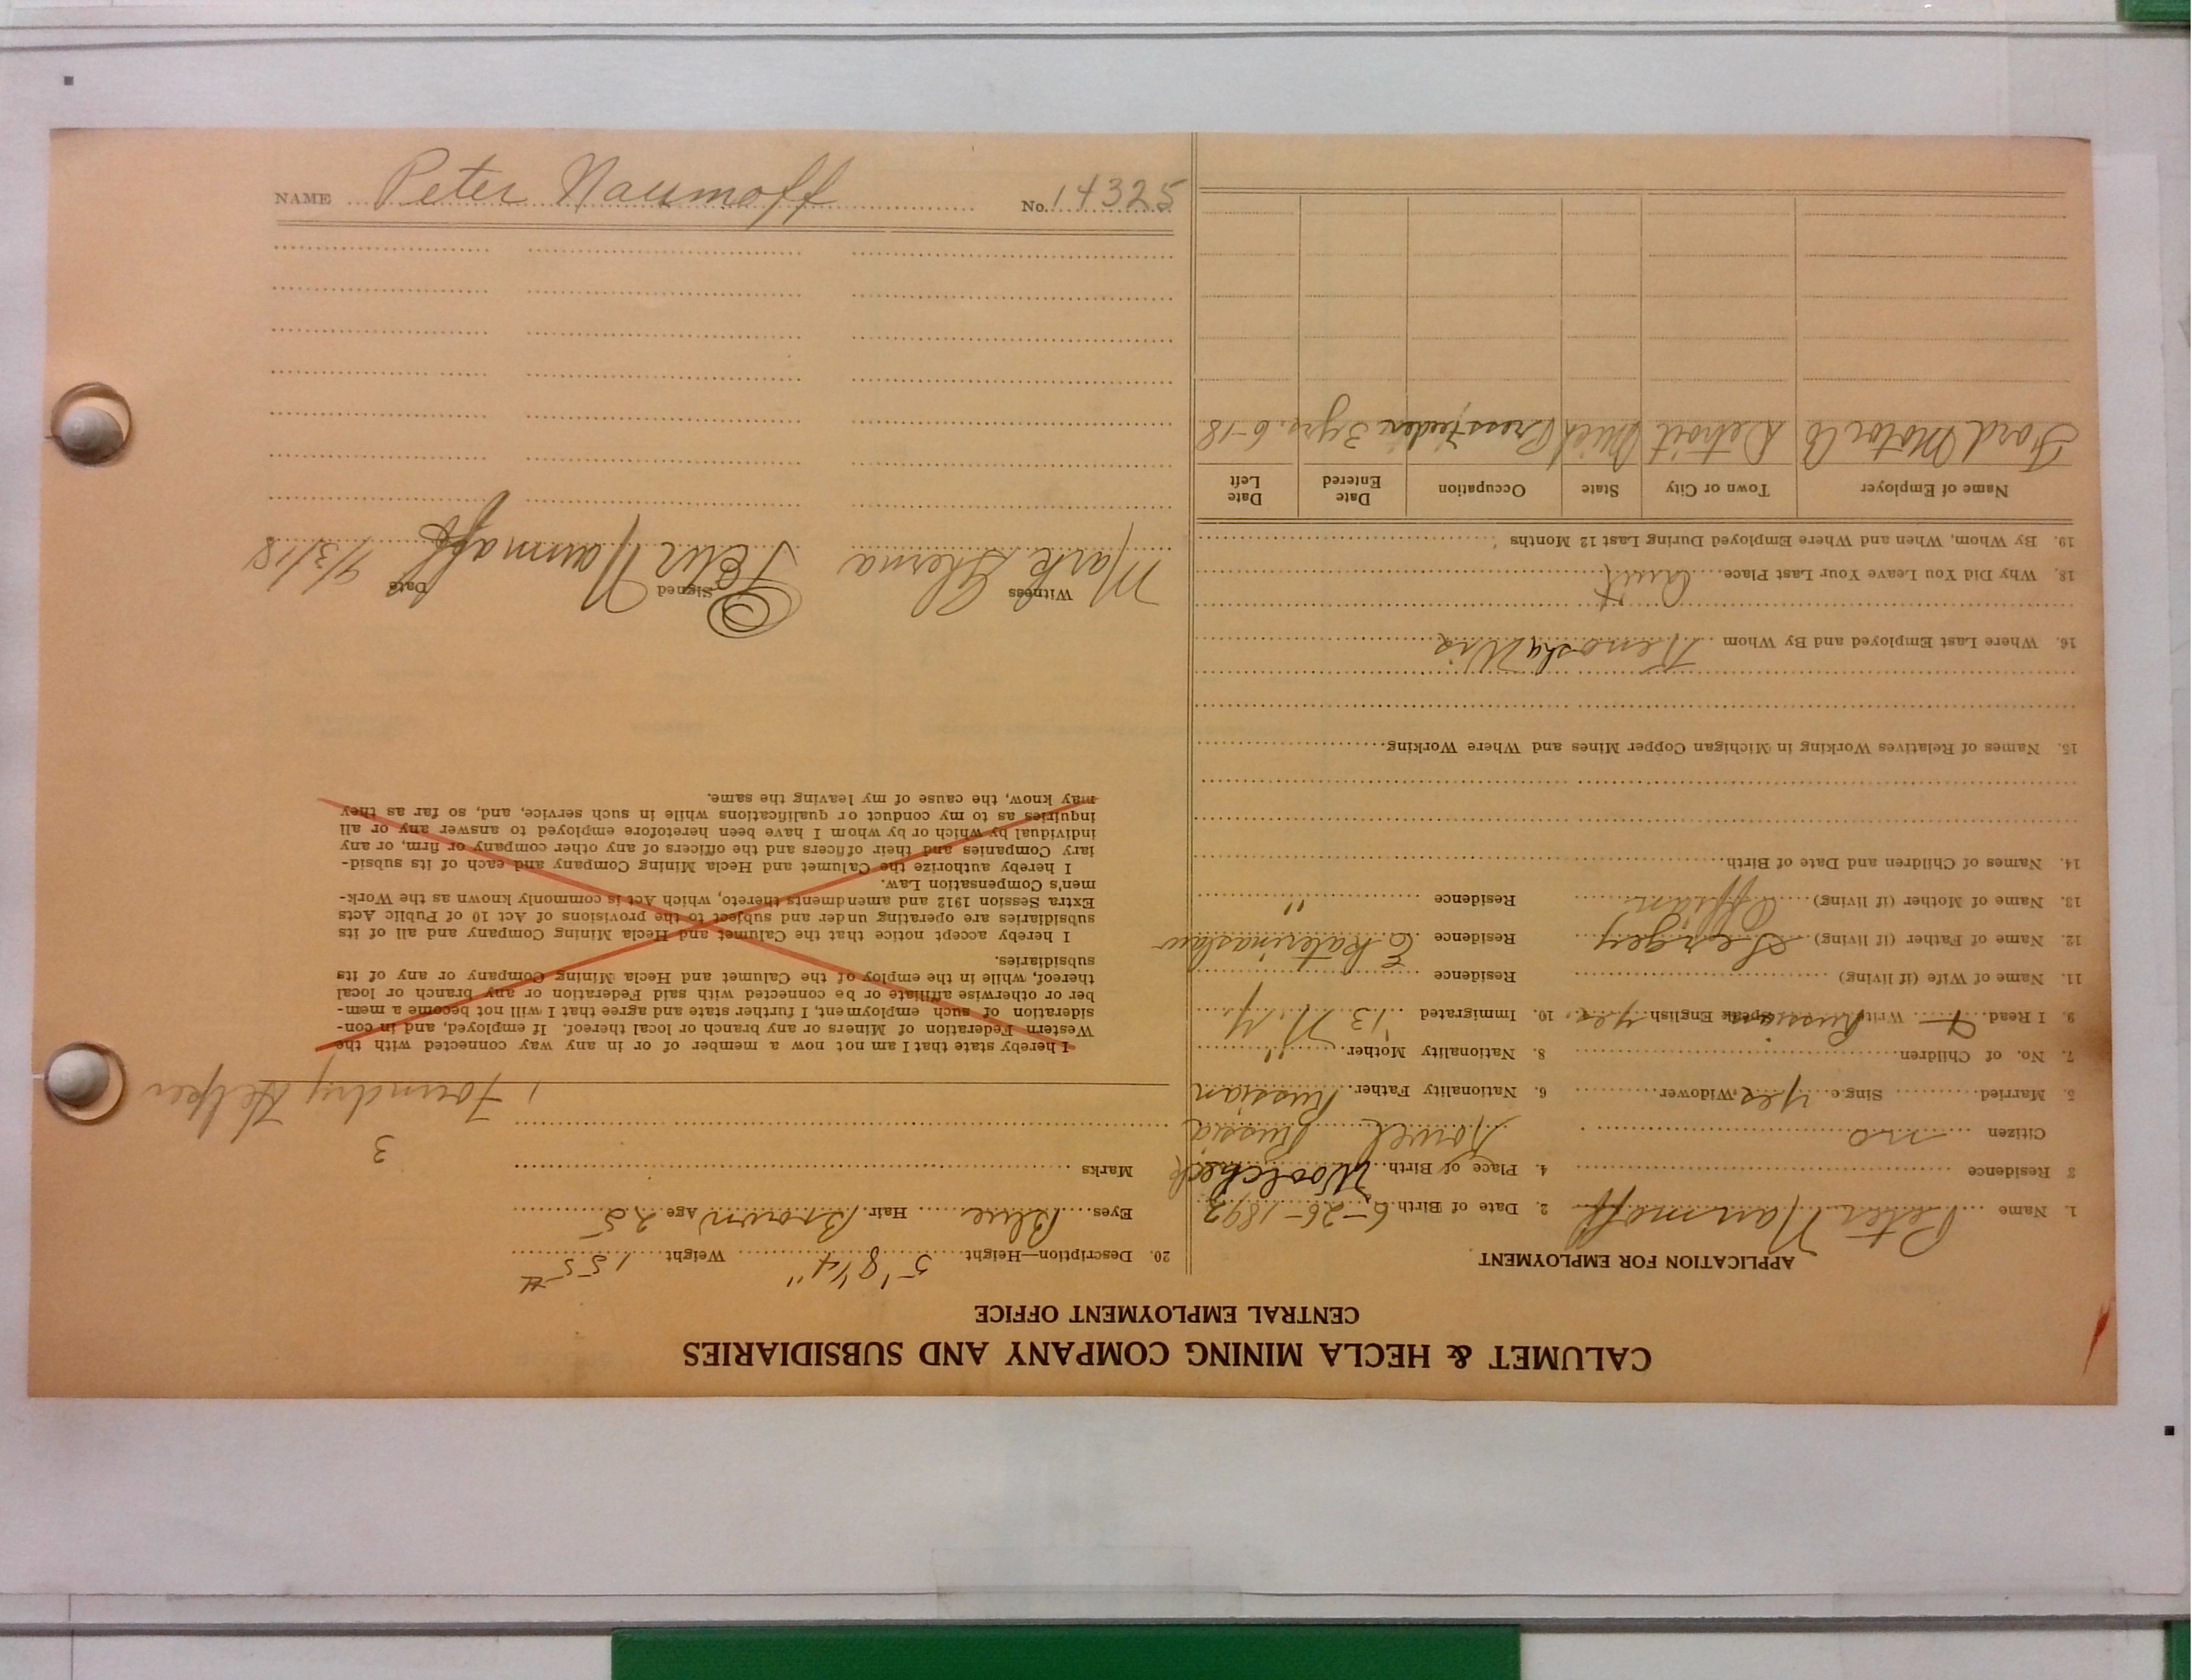 CALUMET & HECLA MINING COMPANY AND SUBSIDIARIES
CENTRAL EMPLOYMENT OFFICE
APPLICATION FOR EMPLOYMENT
1. Name Peter Naumoff 2. Date of Birth 6-26-1892
3 Residence 4. Place of Birth
Citizen no Kowel Russia
5 Married Single yes Widower 6. Nationality Father Russian
7. No. of Children 8. Nationality Mother "
9. I Read Write Russian Speak English yes 10. Immigrated '13 N.Y.
11. Name of Wife (if living) Residence
12. Name of Father (if living) Sergey Residence Ekaterinaslaw
13. Name of Mother (if living) Residence "
14. Names of Children and Date of Birth
15. Names of Relatives Working in Michigan Copper Mines and Where Working
16. Where Last Employed and By Whom Kenosha Wis
18. Why Did You Leave Your Last Place Quit
19. By Whom, When and Where Employed During Last 12 Months
Name of Employer Town or City State Occupation Date Entered Date Left
Ford Motor Co Detroit Mich 3 yrs. 6-18
20. Description—Height 5' 8 1/4" Weight 155 #
Eyes Blue Hair Brown Age 25
Marks
3
Foundry Helper
I hereby state that I am not now a member of or in any way connected with the
Western Federation of Miners or any branch or local thereof. If employed, and in con-
sideration of such employment, I further state and agree that I will not become a mem-
ber or otherwise affiliate or be connected with said Federation or any branch or local
thereof, while in the employ of the Calumet and Hecla Mining Company or any of its
subsidiaries.
I hereby accept notice that the Calumet and Hecla Mining Company and all of its
subsidiaries are operating under and subject to the provisions of Act 10 of Public Acts
Extra Session 1912 and amendments thereto, which Act is commonly known as the Work-
men's Compensation Law.
I hereby authorize the Calumet and Hecla Mining Company and each of its subsid-
iary Companies and their officers and the officers of any other company or firm, or any
individual by which or by whom I have been heretofore employed to answer any or all
inquiries as to my conduct or qualifications while in such service, and, so far as they
may know, the cause of my leaving the same.
Witness Signed Date
Mark Peter Naumoff /3/18
NAME Peter Naumoff No. 14325